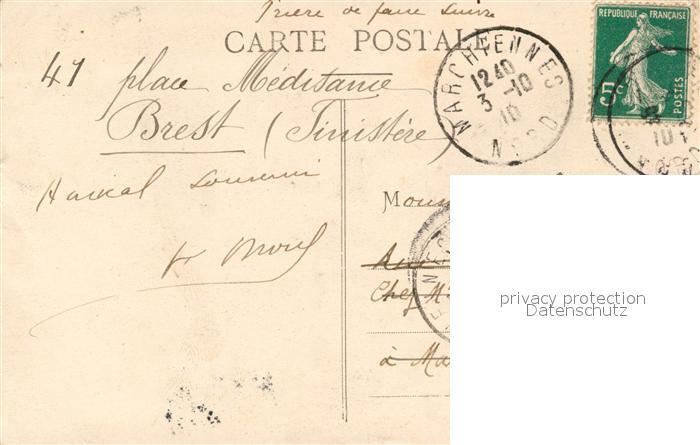 Prière de faire suivre
CARTE POSTALE
41 place Méditance
Brest (Finistère)
MARCHIENNES
12 40
3 -10
10
NORD
REPUBLIQUE FRANÇAISE
5c
POSTES
10
Amical souvenir
Mons
Chez M
à Ma
privacy protection
Datenschutz